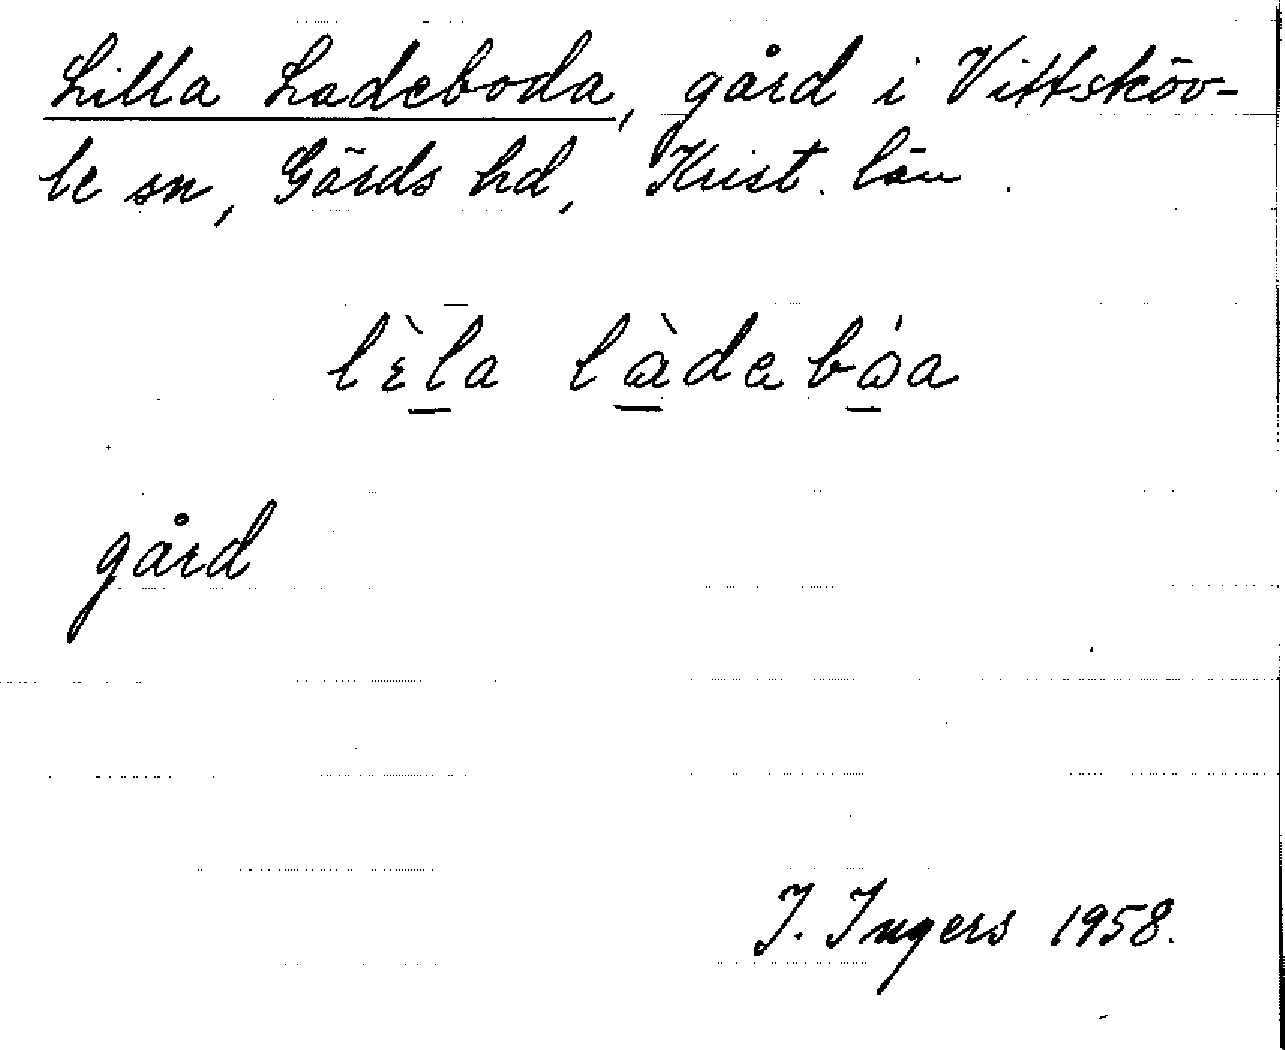 Lilla Ladeboda, gård i Vittsköv-
le sn, Gärds hd, Krist. län.
lὲla làdebόa
gård
I. Ingers 1958.